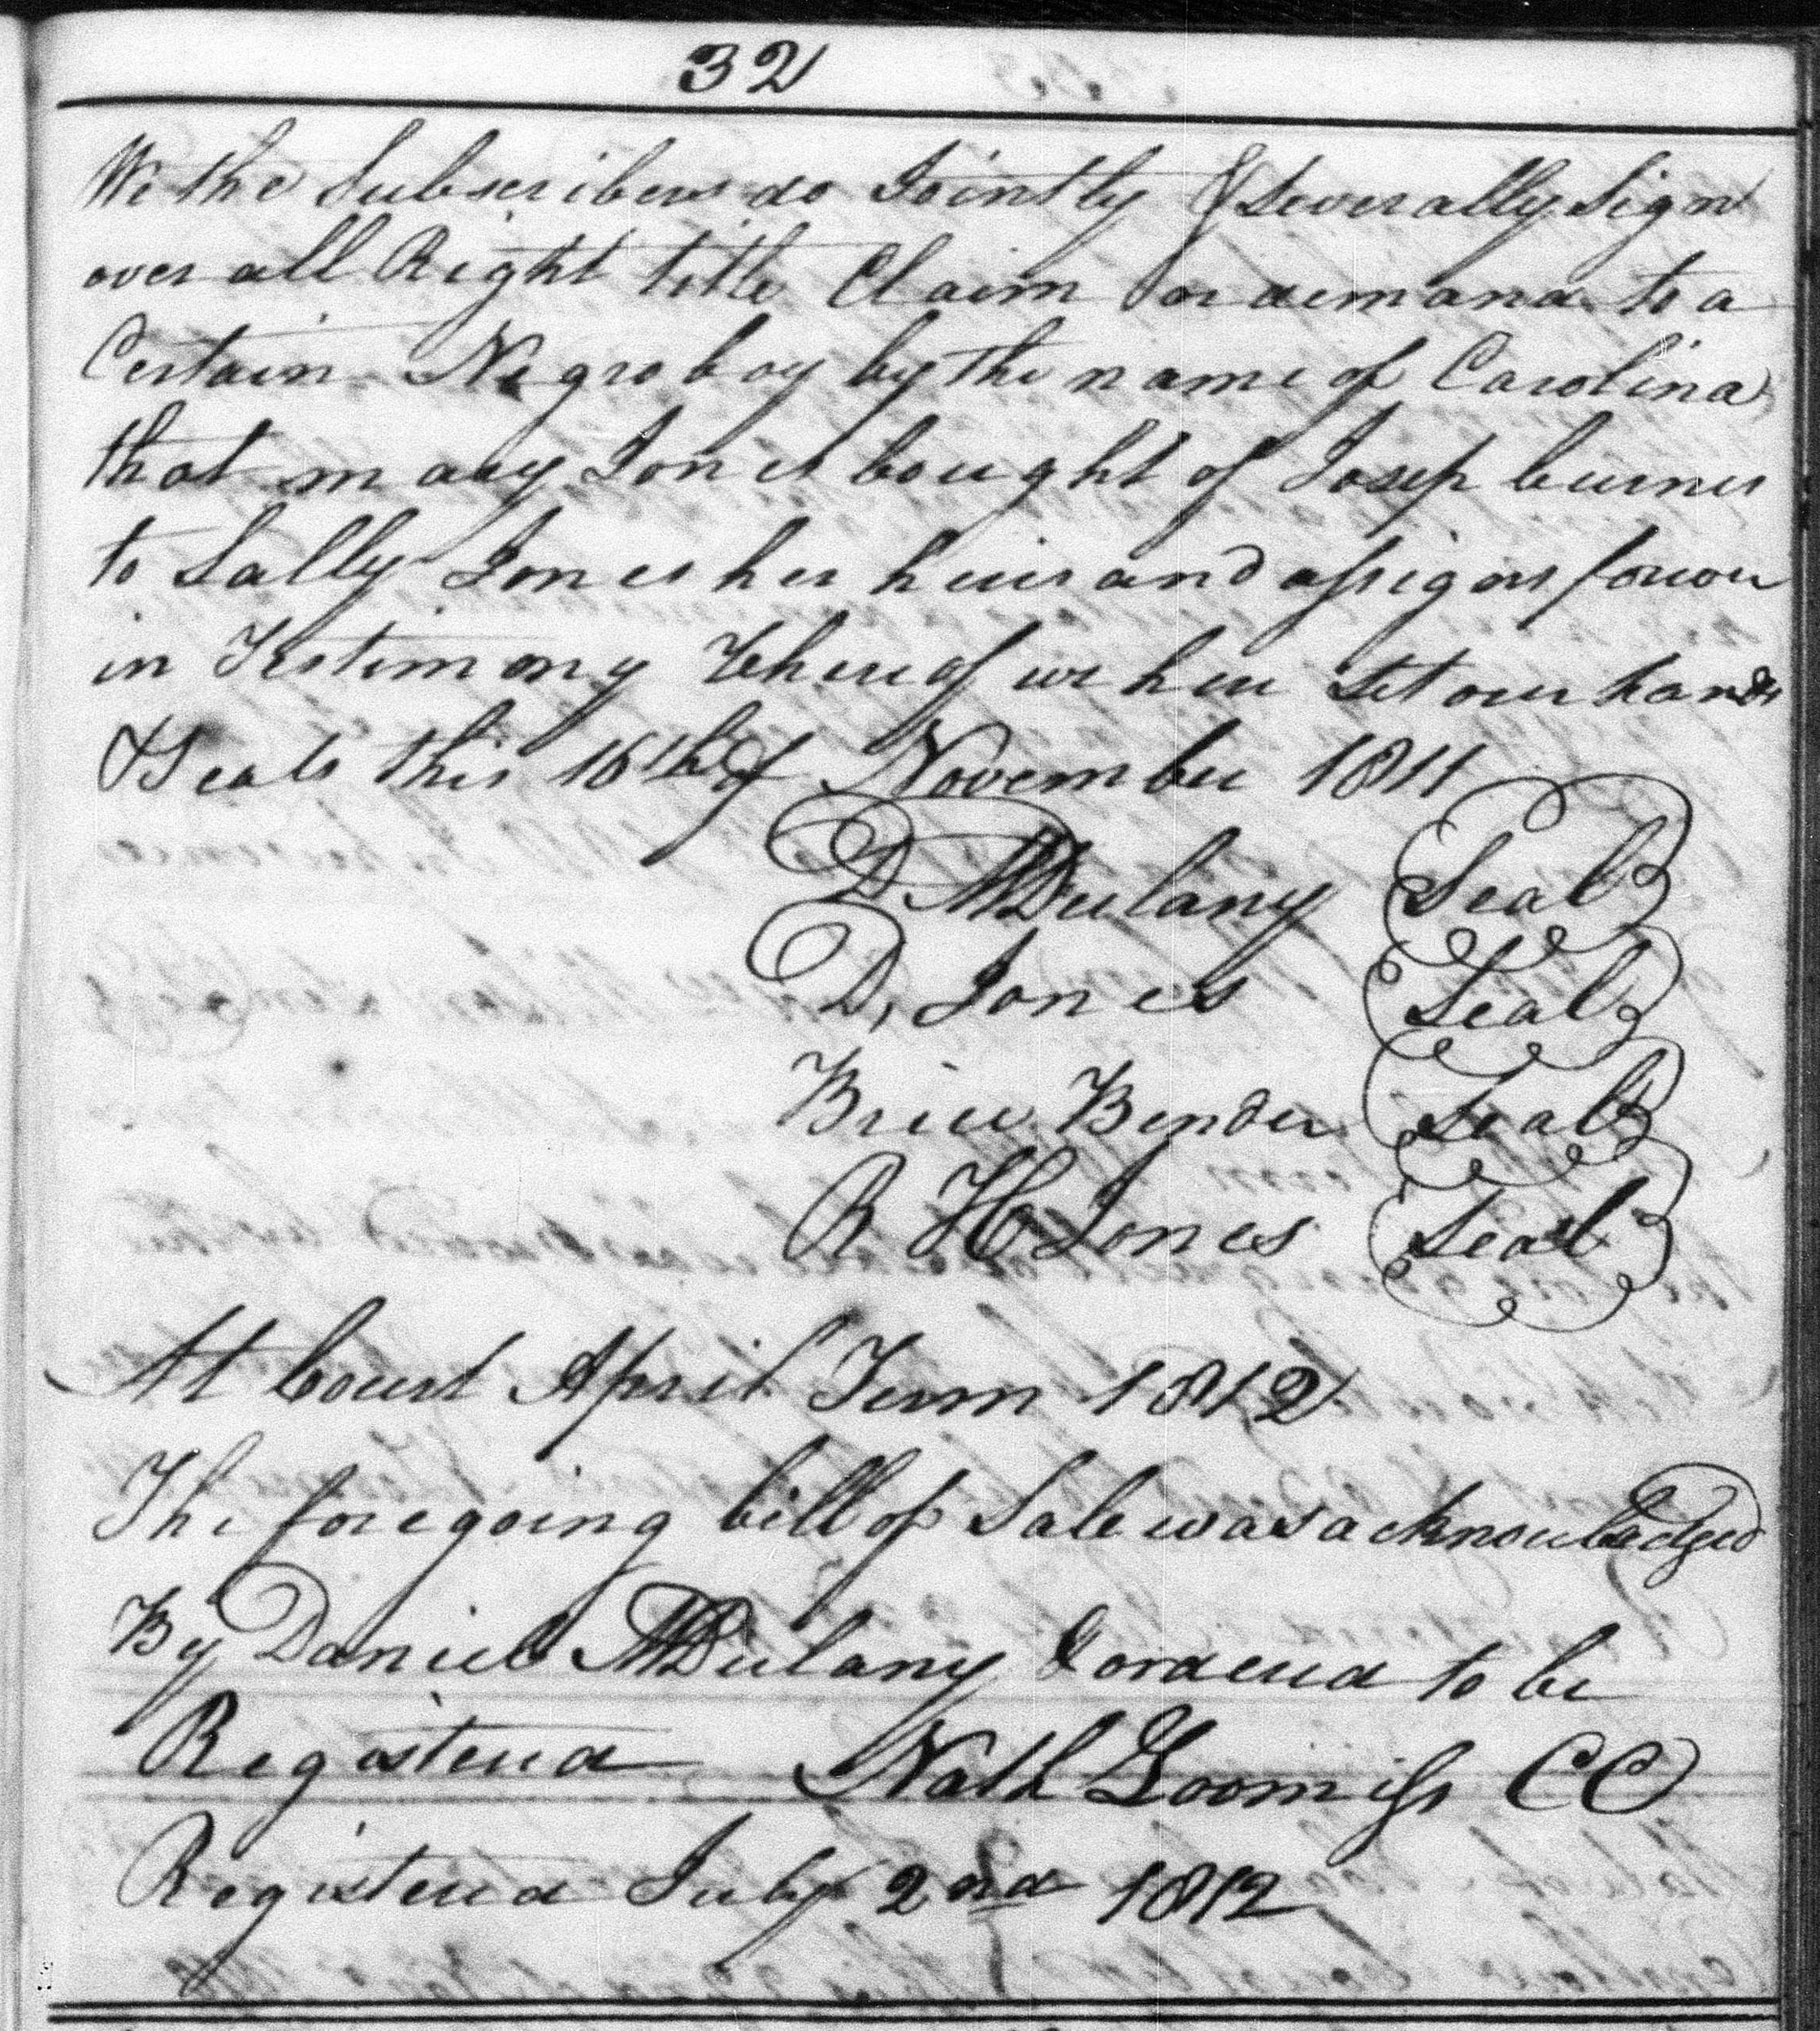 32
We the Subscribers do Jointly & Severally Sign
over all Right title Claim or demand to a
Certain Negro boy by the name of Carolina
that mary Jones bought of Josep burner
to Sally Jones her heirs and assigns forever
in Testimony Whereof we here Set our hands
& Seals this 16th of November 1811
D McDulany Seal
D, Jones Seal
Brice Bender Seal
R H Jones Seal
At Court April Term 1812
The foregoing bill of Sale was acknowledged
By Daniel McDulany & ordered to be
Registered Nathl Loomiss CC
Registered July 2nd 1812